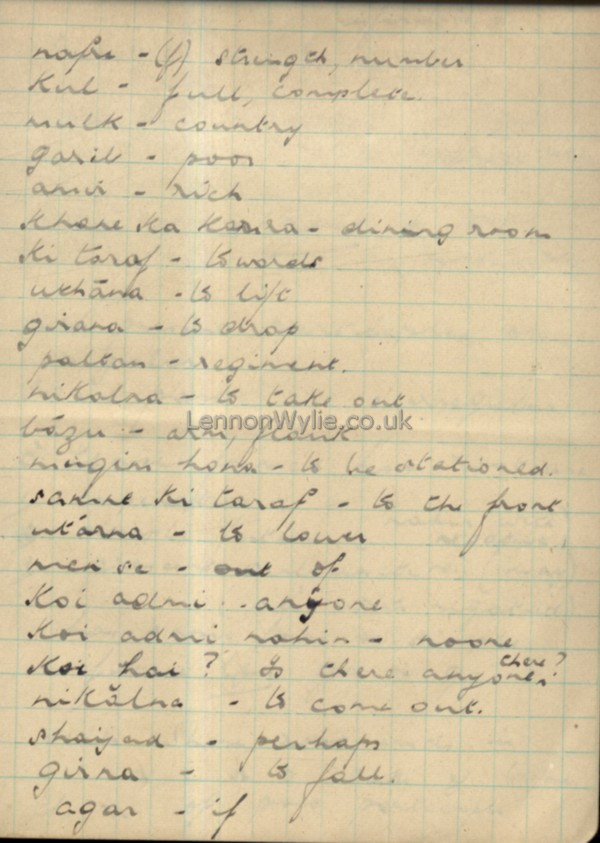 nafri - (f) strength, number
Kul - full, complete.
mulk - country
garib - poor
amir - rich
Khane Ka Kamra - dining room
Ki taraf - towards
uthāna - to lift
girana - to drop
paltan - regiment.
nikalna - to take out
LennonWylie.co.uk
bāzu - arm, flank
muqim hona - to be stationed.
samne Ki taraf - to the front
utārna - to lower
men se - out of
Koi admi - anyone
Koi admi nahin - noone
Koi hai? Is there anyone there?
nikălna - to come out.
shaiyad - perhaps
girna - to fall.
agar - if